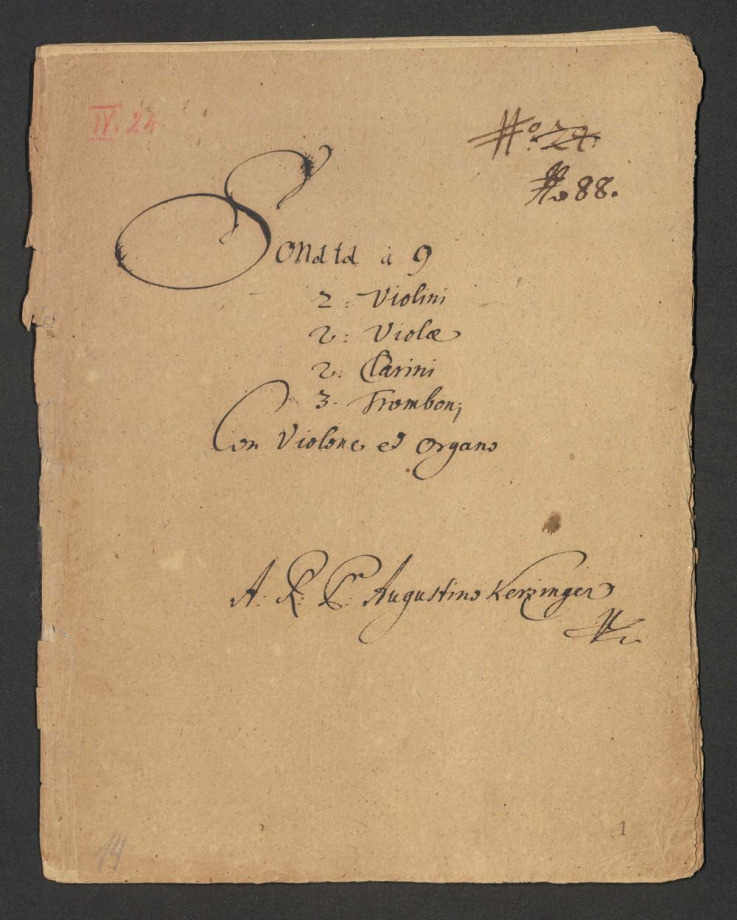 IV. 24
No. 29.
No 88.
Sonata à 9
2: Violini
2: Violæ
2: Clarini
3. Tromboni
Con Violone ed Organo
A: R: P: Augustino Kerzinger
14
1